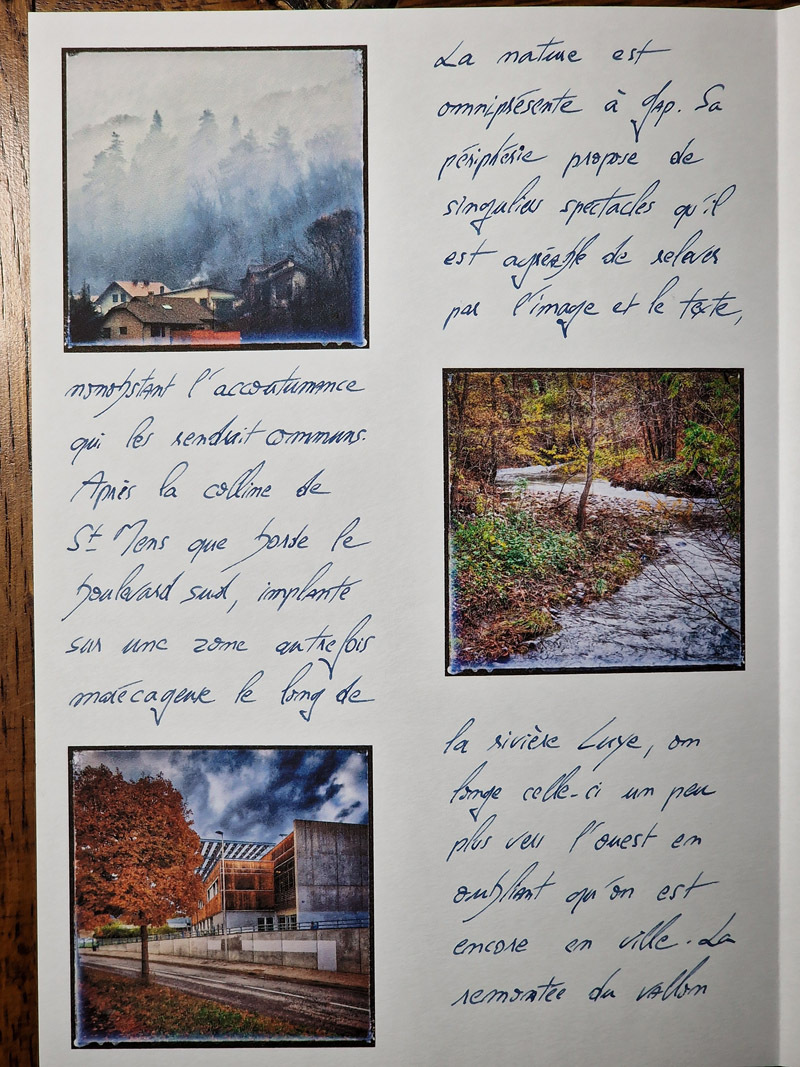 La nature est
omniprésente à Gap. Sa
périphérie propose de
singuliers spectacles qu'il
est agréable de relever
par l'image et le texte,
nonobstant l'accoutumance
qui les rendrait communs.
Après la colline de
St Mens que borde le
boulevard sud, implanté
sur une zone autrefois
marécageuse le long de
la rivière Luye, on
longe celle-ci un peu
plus vers l'ouest en
oubliant qu'on est
encore en ville. La
remontée du vallon